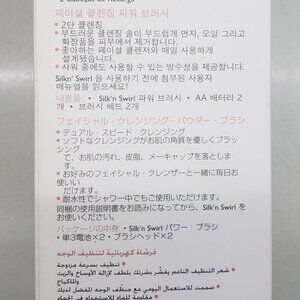 2 Cabeças de Recarga
페이셜 클렌징 파워 브러시
• 2단 클렌징
• 부드러운 클렌징 솔이 부드럽게 먼지, 오일 그리고
화장품을 피부에서 제거합니다.
• 좋아하는 페이셜 클렌저와 매일 사용하게
설계됐습니다.
• 샤워 중에도 사용할 수 있는 방수성을 제공합니다.
Silkn' Swirl 을 사용하기 전에 첨부된 사용자
매뉴얼을 읽으세요!
내용품: • Silk'n Swirl 파워 브러시 • AA 배터리 2
개 • 브러시 헤드 2개
フェイシャル・クレンジング・パウダー・ブラシ
• デュアル・スピード・クレンジング
• ソフトなクレンジングがお肌の角質を優しくブラッ
シング
て、お肌の汚れ、皮脂、メーキャップを落としま
す。
• お好みのフェイシャル・クレンザーと一緒に毎日お
使いい
だけます。
• 耐水性でシャワー中でもご使用いただけます。
同梱の使用説明書をお読みになってから、Silk'n Swirl
をお使いください。
パッケージの中身: • Silk'n Swirl パワー・ブラシ
• 単3電池×2 • ブラシヘッド×2
فرشاة كهربائية لتنظيف الوجه
• تنظيف بسرعة مزدوجة
• شعر التنظيف الناعم يقشّر بشرتك بلطف لإزالة الأوساخ والزيت
والماكياج
• صممت للاستعمال اليومي مع منظّف الوجه المفضل لديك
• مقاومة للماء للاستخدام في الحمام